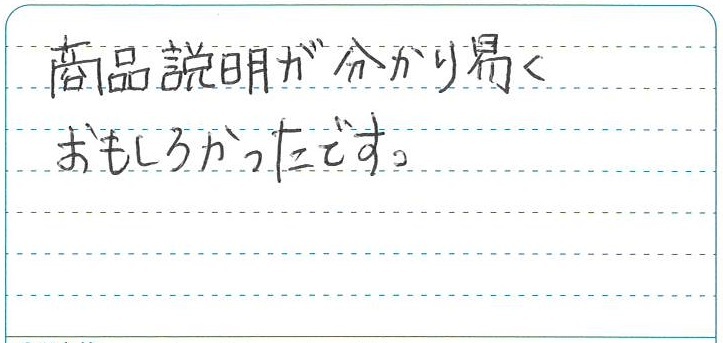 商品説明が分かり易く
おもしろかったです。